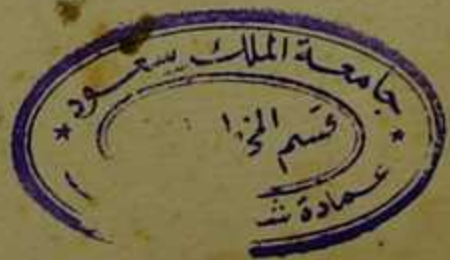 جامعة الملك سعود
قسم
عمادة